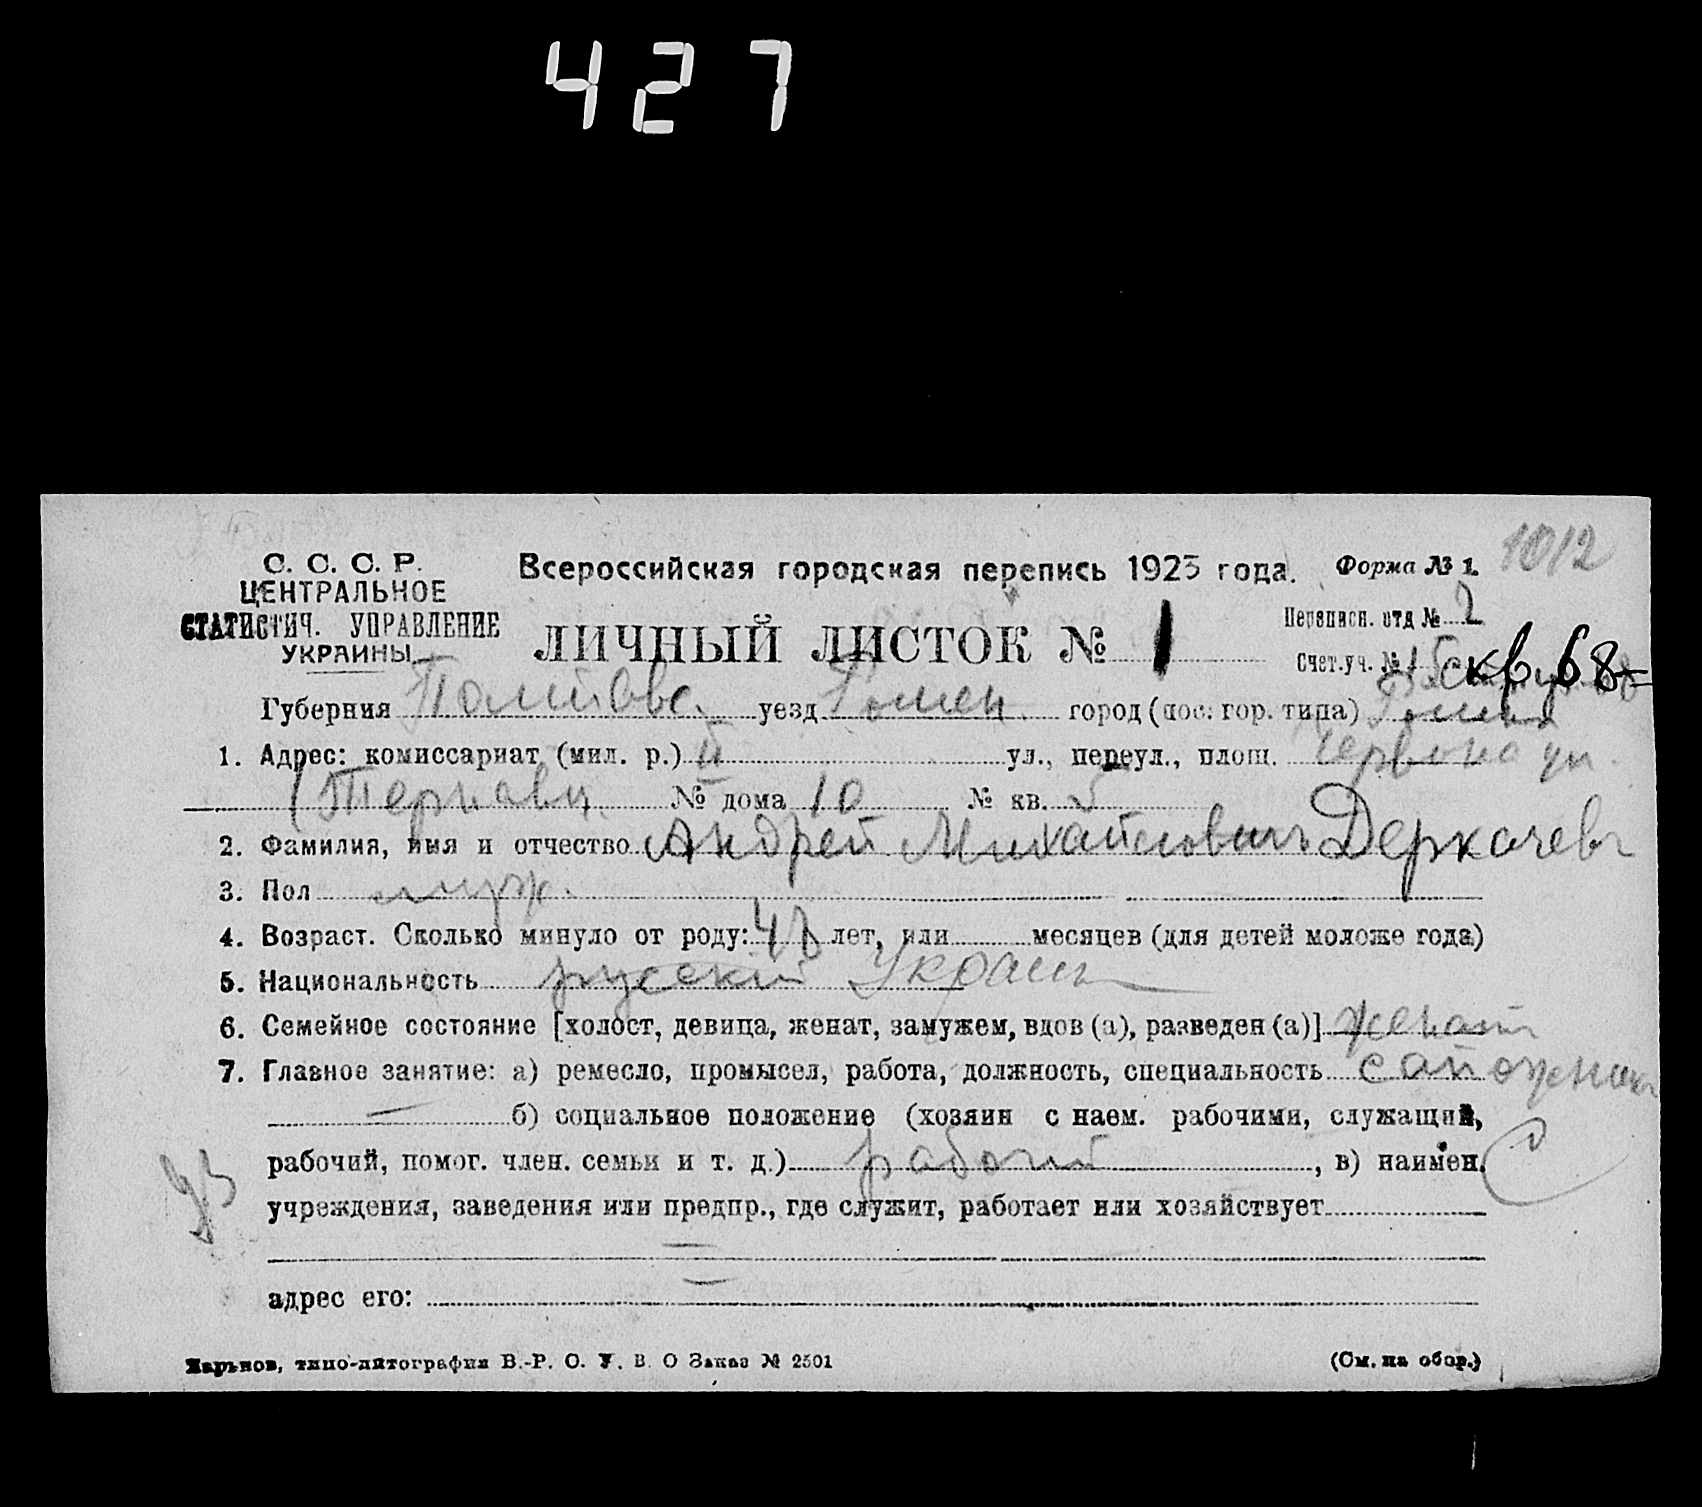 427
1012
С. С. С. Р.
ЦЕНТРАЛЬНОЕ
СТАТИСТИЧ. УПРАВЛЕНИЕ
УКРАИНЫ
Всероссийская городская перепись 1923 года.
Форма № 1.
ЛИЧНЫЙ ЛИСТОК № 1
Переписн. отд № 2
Счет. уч. № кв 68
Губерния Полтавс. уезд Ромен. город (пос. гор. типа) Ромны
1. Адрес: комиссариат (мил. р.) II ул., переул., площ. Червона ул.
№ дома 10 № кв. 5
2. Фамилия, имя и отчество Андрей Михайлович Деркачевъ
3. Пол муж.
4. Возраст. Сколько минуло от роду: лет, или месяцев (для детей моложе года)
5. Национальность русский Украин
6. Семейное состояние [холост, девица, женат, замужем, вдов (а), разведен (а)] женат
7. Главное занятие: а) ремесло, промысел, работа, должность, специальность сапожник
— б) социальное положение (хозяин с наем. рабочими, служащий,
рабочий, помог. член. семьи и т. д.) рабочий, в) наимен.
учреждения, заведения или предпр., где служит, работает или хозяйствует
—
адрес его: —
Харьков, типо-литография В.-Р. О. У. В. О Заказ № 2501
(См. на обор.)